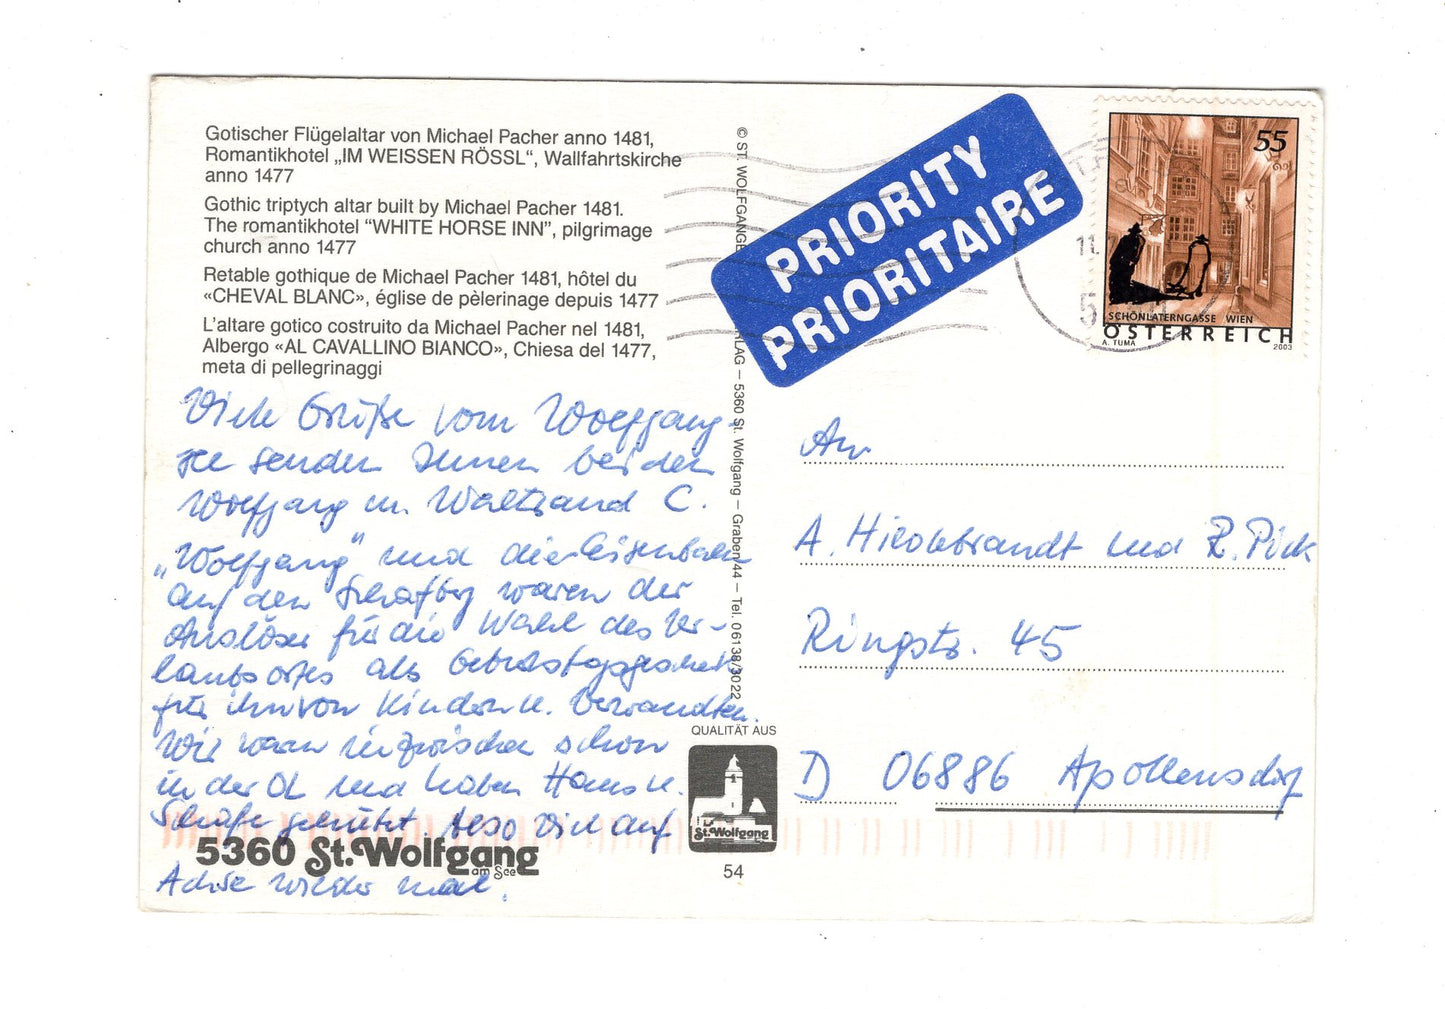 Gotischer Flügelaltar von Michael Pacher anno 1481,
Romantikhotel „IM WEISSEN RÖSSL“, Wallfahrtskirche
anno 1477
Gothic triptych altar built by Michael Pacher 1481.
The romantikhotel “WHITE HORSE INN”, pilgrimage
church anno 1477
Retable gothique de Michael Pacher 1481, hôtel du
«CHEVAL BLANC», église de pèlerinage depuis 1477
L'altare gotico costruito da Michael Pacher nel 1481,
Albergo «AL CAVALLINO BIANCO», Chiesa del 1477,
meta di pellegrinaggi
Viele Grüße vom Wolfgang-
see senden Ihnen beiden
Wolfgang u. Waltraud C.
„Wolfgang“ und die Eisenbahn
auf den Schafbg waren der
Auslöser für die Wahl des Ur-
laubsortes als Geburtstagsgeschenk
für ihn von Kindern u. Verwandten.
Wir waren inzwischen schon
in der OL und haben Haus u.
Schafe gehütet. Also
wieder mal.
5360 St. Wolfgang
am See
© ST. WOLFGANGE LAG – 5360 St. Wolfgang – Graben 44 – Tel. 06138/3022
QUALITÄT AUS
St. Wolfgang
54
PRIORITY
PRIORITAIRE
55
SCHÖNLATERNGASSE WIEN
ÖSTERREICH
A. TUMA
2003
11.
5
An
A. Hildebrandt und R. Pück
Ringstr. 45
D 06886 Apollensdorf